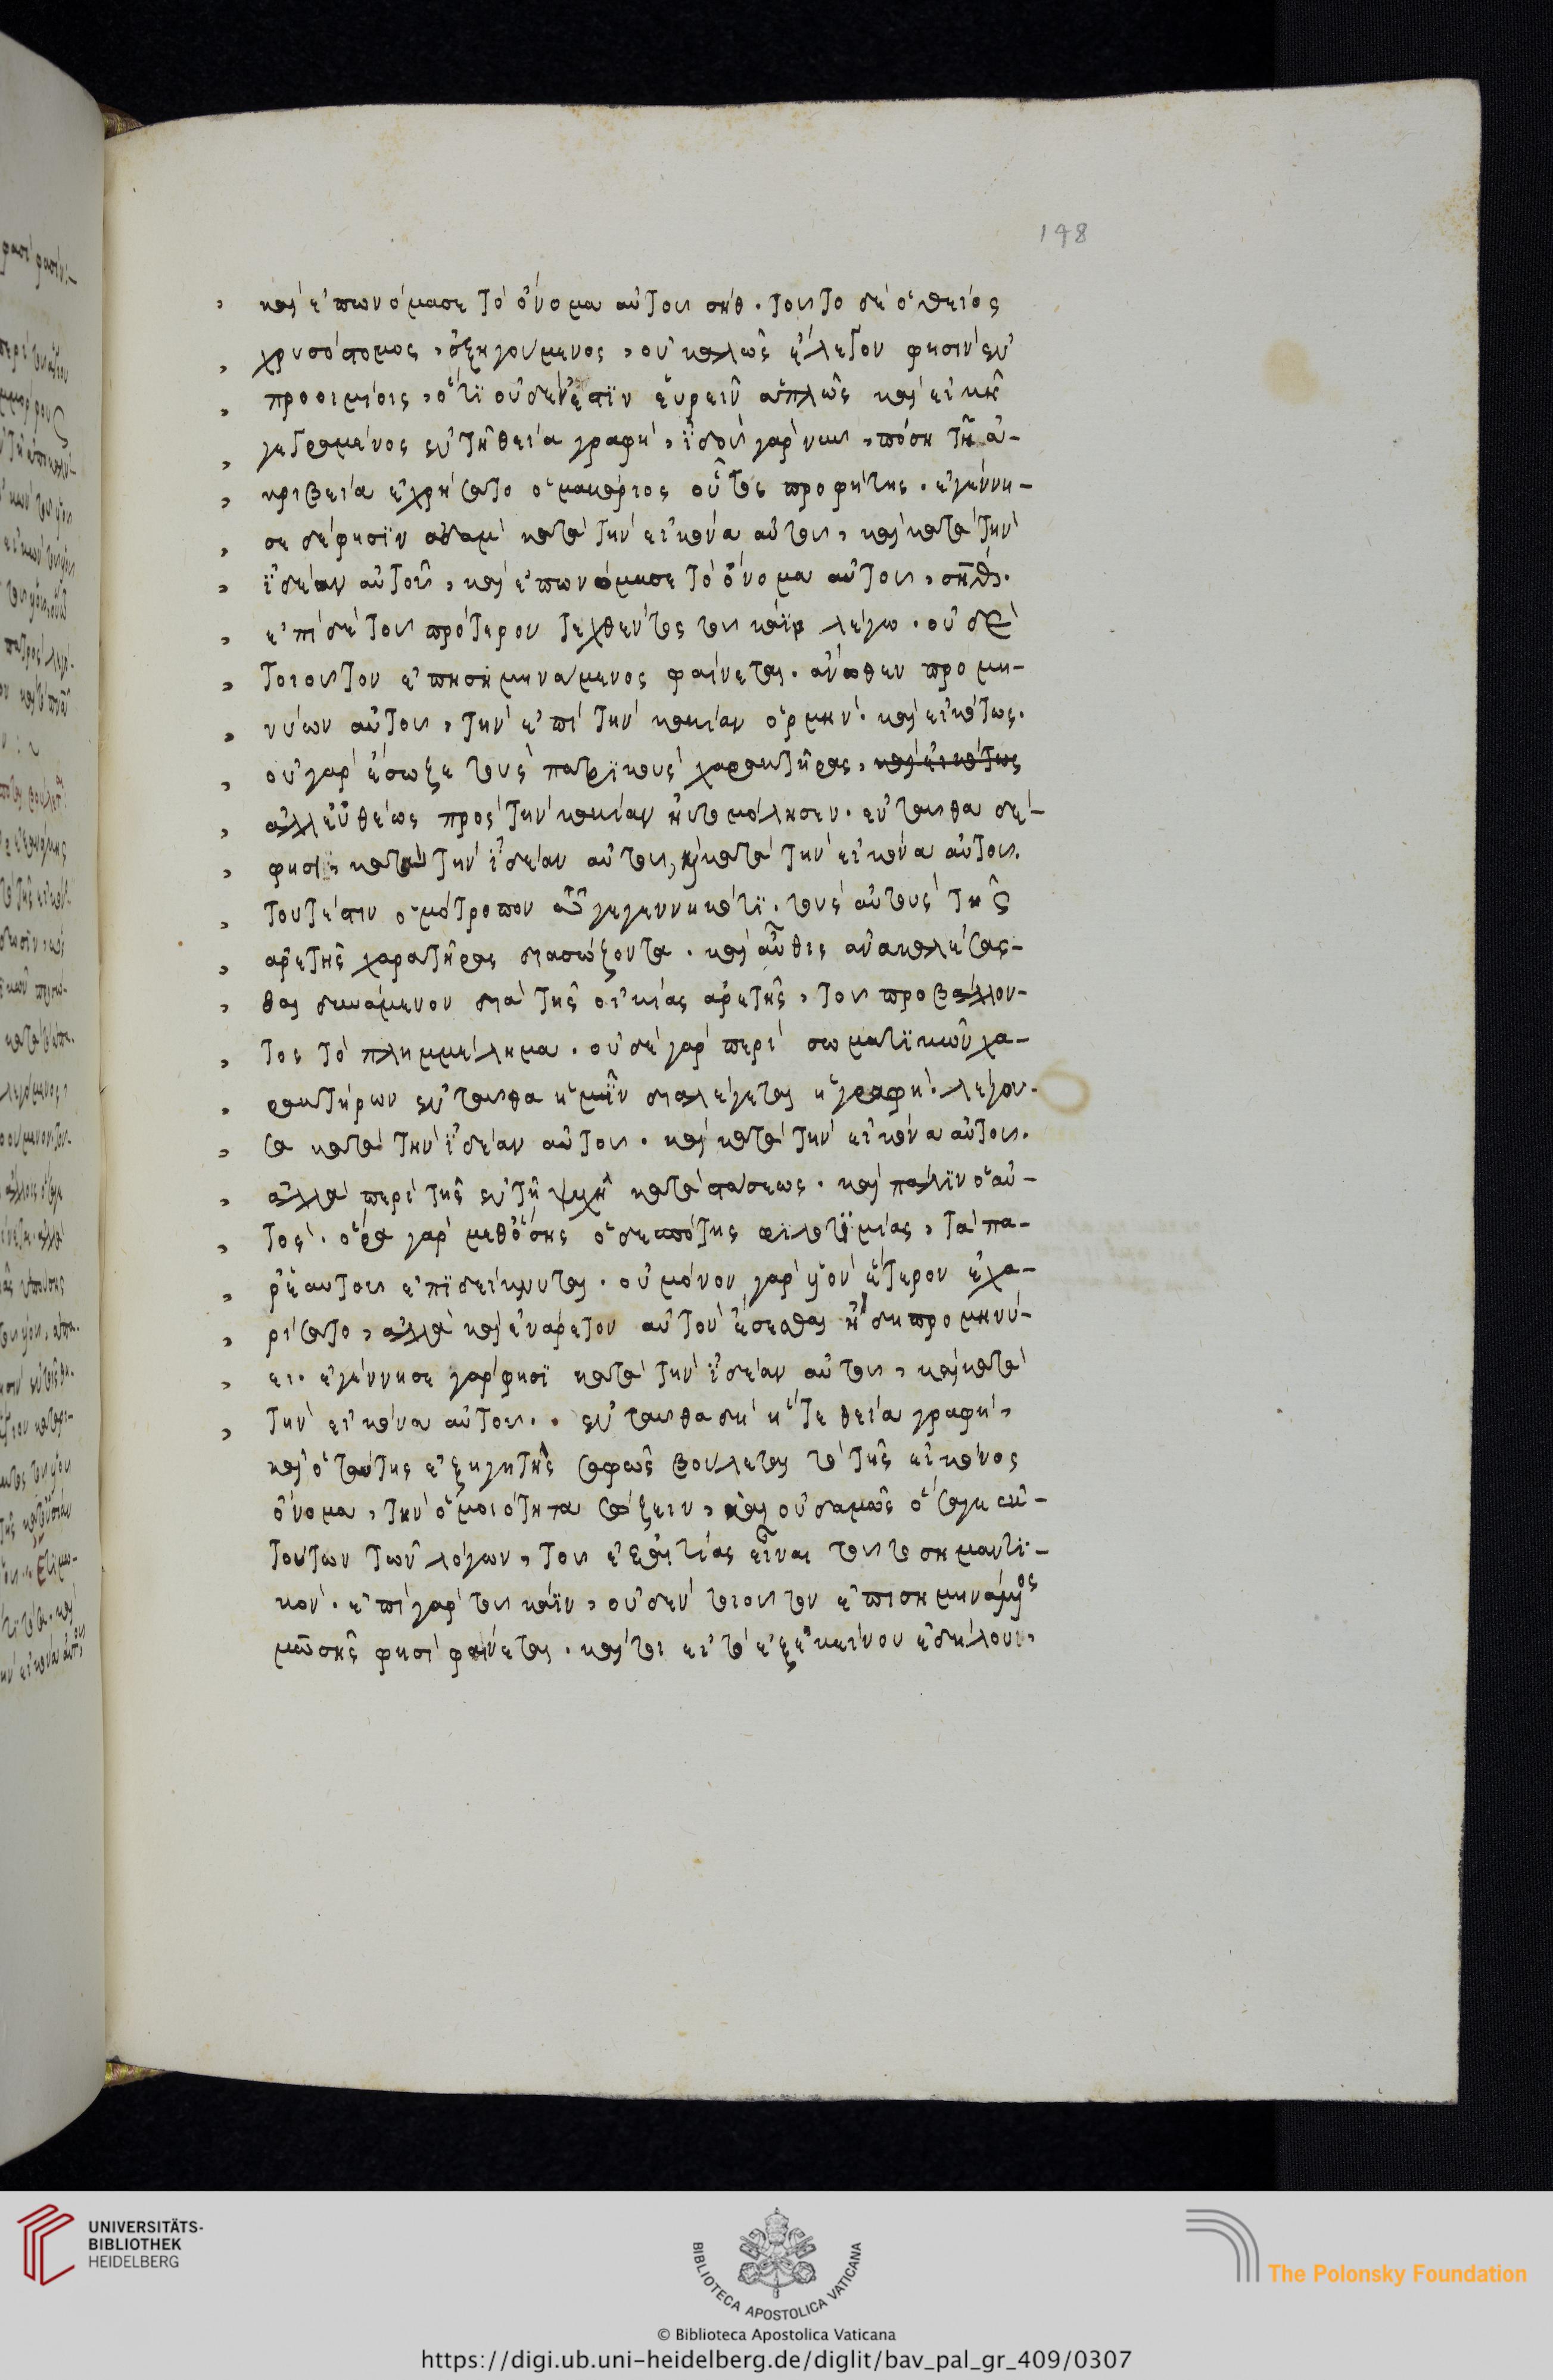 148
καὶ ἐπωνόμασε τὸ ὄνομα αὐτοῦ σήθ. τοῦτο δὲ ὁ θεῖος
χρυσόστομος, ἐξηγούμενος, οὐ καλῶς ἔλεγον φησὶν ἐν
προοιμίοις, ὅτι οὐδέν ἐστὶν εὑρεῖν ἁπλῶς καὶ εἰκῆ
γεγραμμένος ἐν τῆ θεία γραφῆ, ἰδοὺ γὰρ νῦν, πόση τῆ ἀ-
κριβεία ἐχρήσατο ὁ μακάριος οὗτος προφήτης. ἐγέννη-
σε δέ φησὶν ἀδὰμ κατὰ τὴν εἰκόνα αὐτοῦ, καὶ κατὰ τὴν
ἰδέαν αὐτοῦ, καὶ ἐπωνόμασε τὸ ὄνομα αὐτοῦ, σῆθ.
ἐπὶ δὲ τοῦ πρότερον τεχθέντος τοῦ κάϊν λέγω. οὐδὲν
τοιοῦτον ἐπησημηνάμενος φαίνεται. ἄνωθεν προμη-
νύων αὐτοῦ, τὴν ἐπὶ τὴν κακίαν ὁρμήν. καὶ εἰκότως.
οὐ γὰρ ἔσωζε τοὺς πατρικοὺς χαρακτῆρας, καὶ εἰκότως
ἀλλ' εὐθέως πρὸς τὴν κακίαν ηὐτομόλησεν. ἐνταῦθα δὲ
φησὶ, κατὰ τὴν ἰδέαν αὐτοῦ, καὶ κατὰ τὴν εἰκόνα αὐτοῦ.
τουτέστιν ὁμότροπον τῶ γεγεννηκότι. τοὺς αὐτοὺς τῆς
ἀρετῆς χαρατῆρας διασώζοντα. καὶ αὖθις ἀνακαλέσασ-
θαι δυνάμενον διὰ τῆς οἰκίας ἀρετῆς, τοῦ προβάλλον-
τος τὸ πλημμέλημα. οὐδὲ γὰρ περὶ σωματικῶν χα-
ρακτήρων ἐνταῦθα ἡμῖν διαλέγεται ἡ γραφὴ. λέγου-
σα κατὰ τὴν ἰδέαν αὐτοῦ. καὶ κατὰ τὴν εἰκόνα αὐτοῦ.
ἀλλὰ περὶ τῆς ἐν τῆ ψυχῆ καταστάσεως. καὶ πάλιν ὁ αὐ-
τός. ὅρα γὰρ μεθ' ὅσης ὁ δεσπότης φιλοτιμίας, τὰ πα-
ρ' ἑαυτοῦ ἐπιδείκνυται. οὐ μόνον γὰρ υἱὸν ἕτερον ἐχα-
ρίσατο, ἀλλὰ καὶ ἐνάρετον αὐτὸν ἔσεσθαι ἤδη προμηνύ-
ει. ἐγέννησε γὰρ φησὶ κατὰ τὴν ἰδέαν αὐτοῦ, καὶ κατὰ
τὴν εἰκόνα αὐτοῦ.. ἐνταῦθα δὴ ἥ τε θεία γραφὴ,
καὶ ὁ ταύτης ἐξηγητὴς σαφῶς βούλεται τὸ τῆς εἰκόνος
ὄνομα, τὴν ὁμοιότητα σώζειν, καὶ οὐδαμῶς ὅσα γε ἐκ
τούτων τῶν λόγων, τοῦ ἐξ αἰτίας εἶναι τοῦτο σημαντι-
κόν. ἐπὶ γὰρ τοῦ κάϊν, οὐδὲν τοιοῦτον ἐπισημηνάμενος
μωσῆς φησὶ φαίνεται. καίτοι εἰ τὸ ἐξ ἐκείνου ἐδήλου,
UNIVERSITÄTS-
BIBLIOTHEK
HEIDELBERG
BIBLIOTECA APOSTOLICA VATICANA
The Polonsky Foundation
© Biblioteca Apostolica Vaticana
https://digi.ub.uni-heidelberg.de/diglit/bav_pal_gr_409/0307